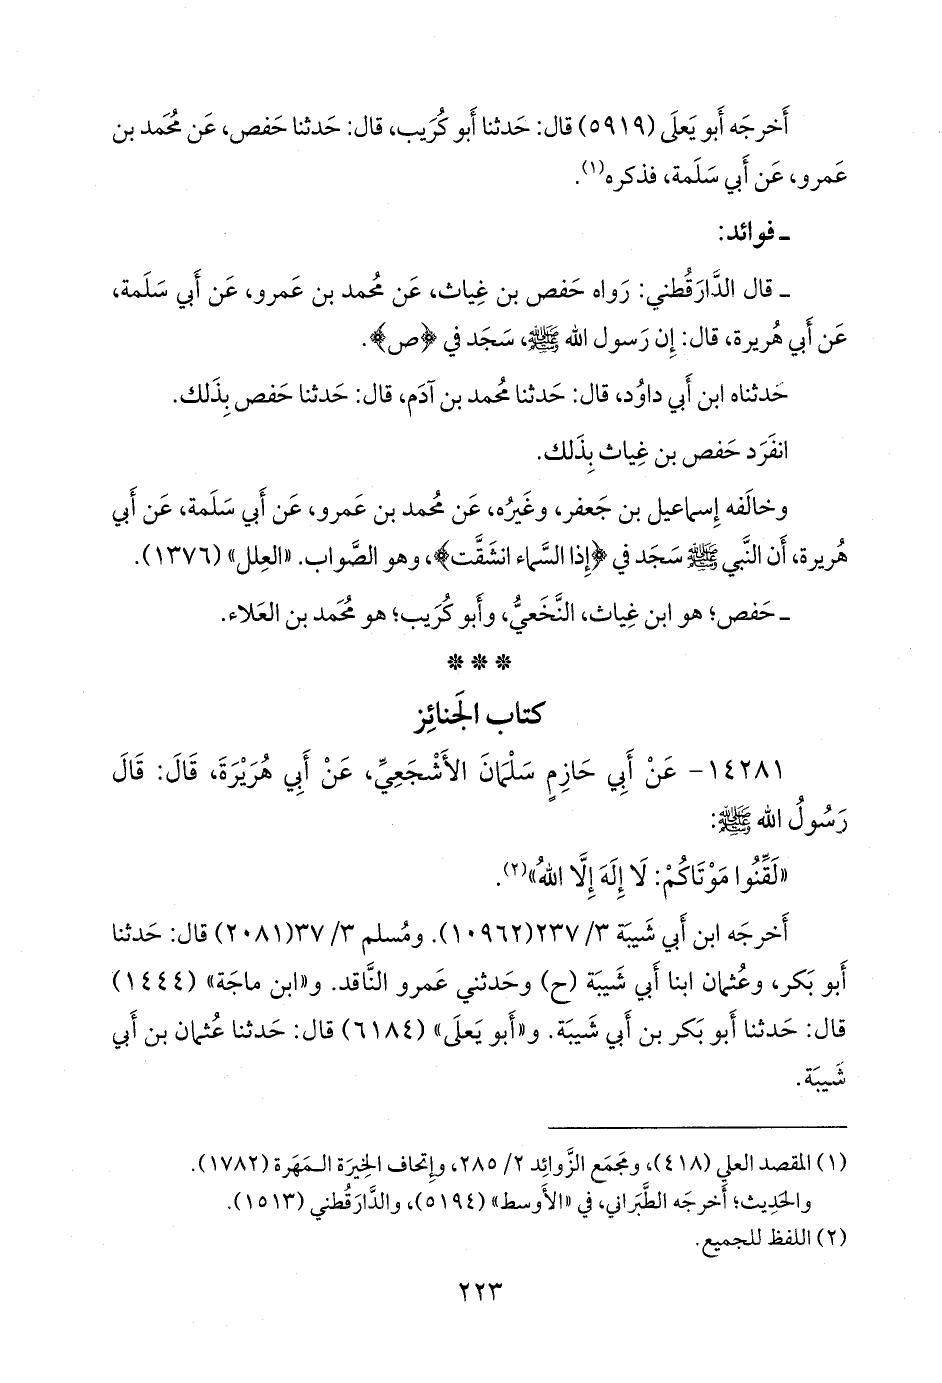 أَخرجَه أَبو يَعلَى (٥٩١٩) قال: حَدثنا أَبو كُرَيب، قال: حَدثنا حَفص، عَن مُحمد بن
عَمرو، عَن أَبي سَلَمة، فذكره(١).
ـ فوائد:
ـ قال الدَّارَقُطني: رَواه حَفص بن غِياث، عَن مُحمد بن عَمرو، عَن أَبي سَلَمة،
عَن أَبي هُريرة، قال: إِن رَسول الله ﷺ، سَجَد في ﴿ص﴾.
حَدثناه ابن أَبي داوُد، قال: حَدثنا مُحمد بن آدَم، قال: حَدثنا حَفص بِذَلك.
انفَرَد حَفص بن غِياث بِذَلك.
وخالَفه إِسماعيل بن جَعفر، وغَيرُه، عَن مُحمد بن عَمرو، عَن أَبي سَلَمة، عَن أَبي
هُريرة، أَن النَّبي ﷺ سَجَد في ﴿إِذا السَّماء انشَقَّت﴾، وهو الصَّواب. «العِلل» (١٣٧٦).
ـ حَفص؛ هو ابن غِياث، النَّخَعيُّ، وأَبو كُرَيب؛ هو مُحمد بن العَلاء.
***
كتاب الجَنائِز
١٤٢٨١- عَنْ أَبِي حَازِمٍ سَلْمَانَ الأَشْجَعِيِّ، عَنْ أَبِي هُرَيْرَةَ، قَالَ: قَالَ
رَسُولُ الله ﷺ:
«لَقِّنُوا مَوْتَاكُمْ: لَا إِلَهَ إِلَّا اللهُ»(٢).
أَخرجَه ابن أَبي شَيبَة ٣/ ٢٣٧(١٠٩٦٢). ومُسلم ٣/ ٣٧(٢٠٨١) قال: حَدثنا
أَبو بَكر، وعُثمان ابنا أَبي شَيبَة (ح) وحَدثني عَمرو النَّاقد. و«ابن ماجَة» (١٤٤٤)
قال: حَدثنا أَبو بَكر بن أَبي شَيبَة. و«أَبو يَعلَى» (٦١٨٤) قال: حَدثنا عُثمان بن أَبي
شَيبَة.
(١) المقصد العلي (٤١٨)، ومَجمَع الزَّوائِد ٢/ ٢٨٥، وإِتحاف الخِيرَة المَهَرة (١٧٨٢).
والحَدِيث؛ أَخرجَه الطَّبَراني، في «الأَوسط» (٥١٩٤)، والدَّارَقُطني (١٥١٣).
(٢) اللفظ للجميع.
٢٢٣